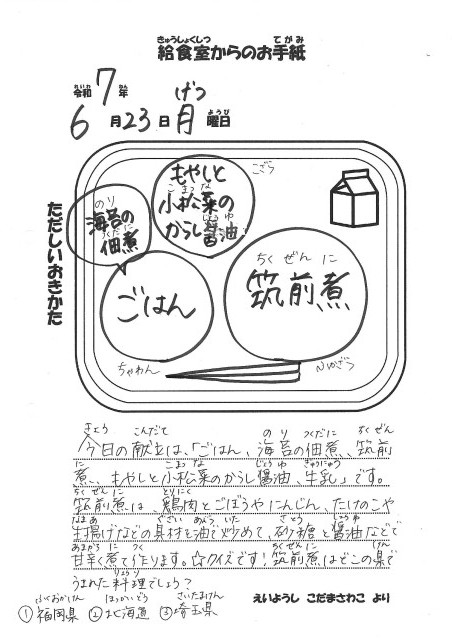 きゅうしょくしつ てがみ
給食室からのお手紙
れいわ ねん げつ
令和7年
ようび
6月23日月曜日
ただしいおきかた
もやしと
こまつな
小松菜の
からし醤油
じょうゆ
こざら
のり
海苔の
つくだに
佃煮
ごはん
ちくぜんに
筑前煮
ちゃわん
きょう こんだて のり つくだに ちくぜん
今日の献立は、「ごはん、海苔の佃煮、筑前
に こまつな じょうゆ ぎゅうにゅう
煮、もやしと小松菜のからし醤油、牛乳」です。
ちくぜんに とりにく
筑前煮は、鶏肉とごぼうやにんじん、たけのこや
なまあ ぐざい あぶら いた さとう しょうゆ
村揚げなどの具材を油で炒めて、砂糖と醤油などで
あまから に つく ちくぜんに けん
甘辛く煮て作ります。☆クイズです!筑前煮はどこの県で
りょうり
うまれた料理でしょう?
ふくおかけん ほっかいどう さいたまけん
①福岡県 ②北海道 ③埼玉県
えいようし こだまさわこ より